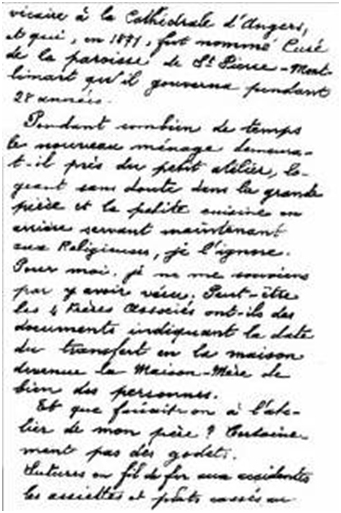 vicaire à la Cathédrale d'Angers,
et qui, en 1871, fut nommé Curé
de la paroisse de St Pierre-Mont-
limart qu'il gouverna pendant
28 années.
Pendant combien de temps
le nouveau ménage demeura-
t-il près du petit atelier, lo-
geant sans doute dans la grande
pièce et la petite cuisine en
arrière servant maintenant
aux Religieuses, je l'ignore.
Pour moi, je ne me souviens
pas y avoir vécu. Peut-être
les 4 Frères Associés ont-ils des
documents indiquant la date
du transfert en la maison
devenue la Maison-Mère de
bien des personnes.
Et que faisait-on à l'ate-
lier de mon père ? Certaine-
ment pas des godets.
Sutures en fil de fer aux accidentés
les assiettes et plats cassés au